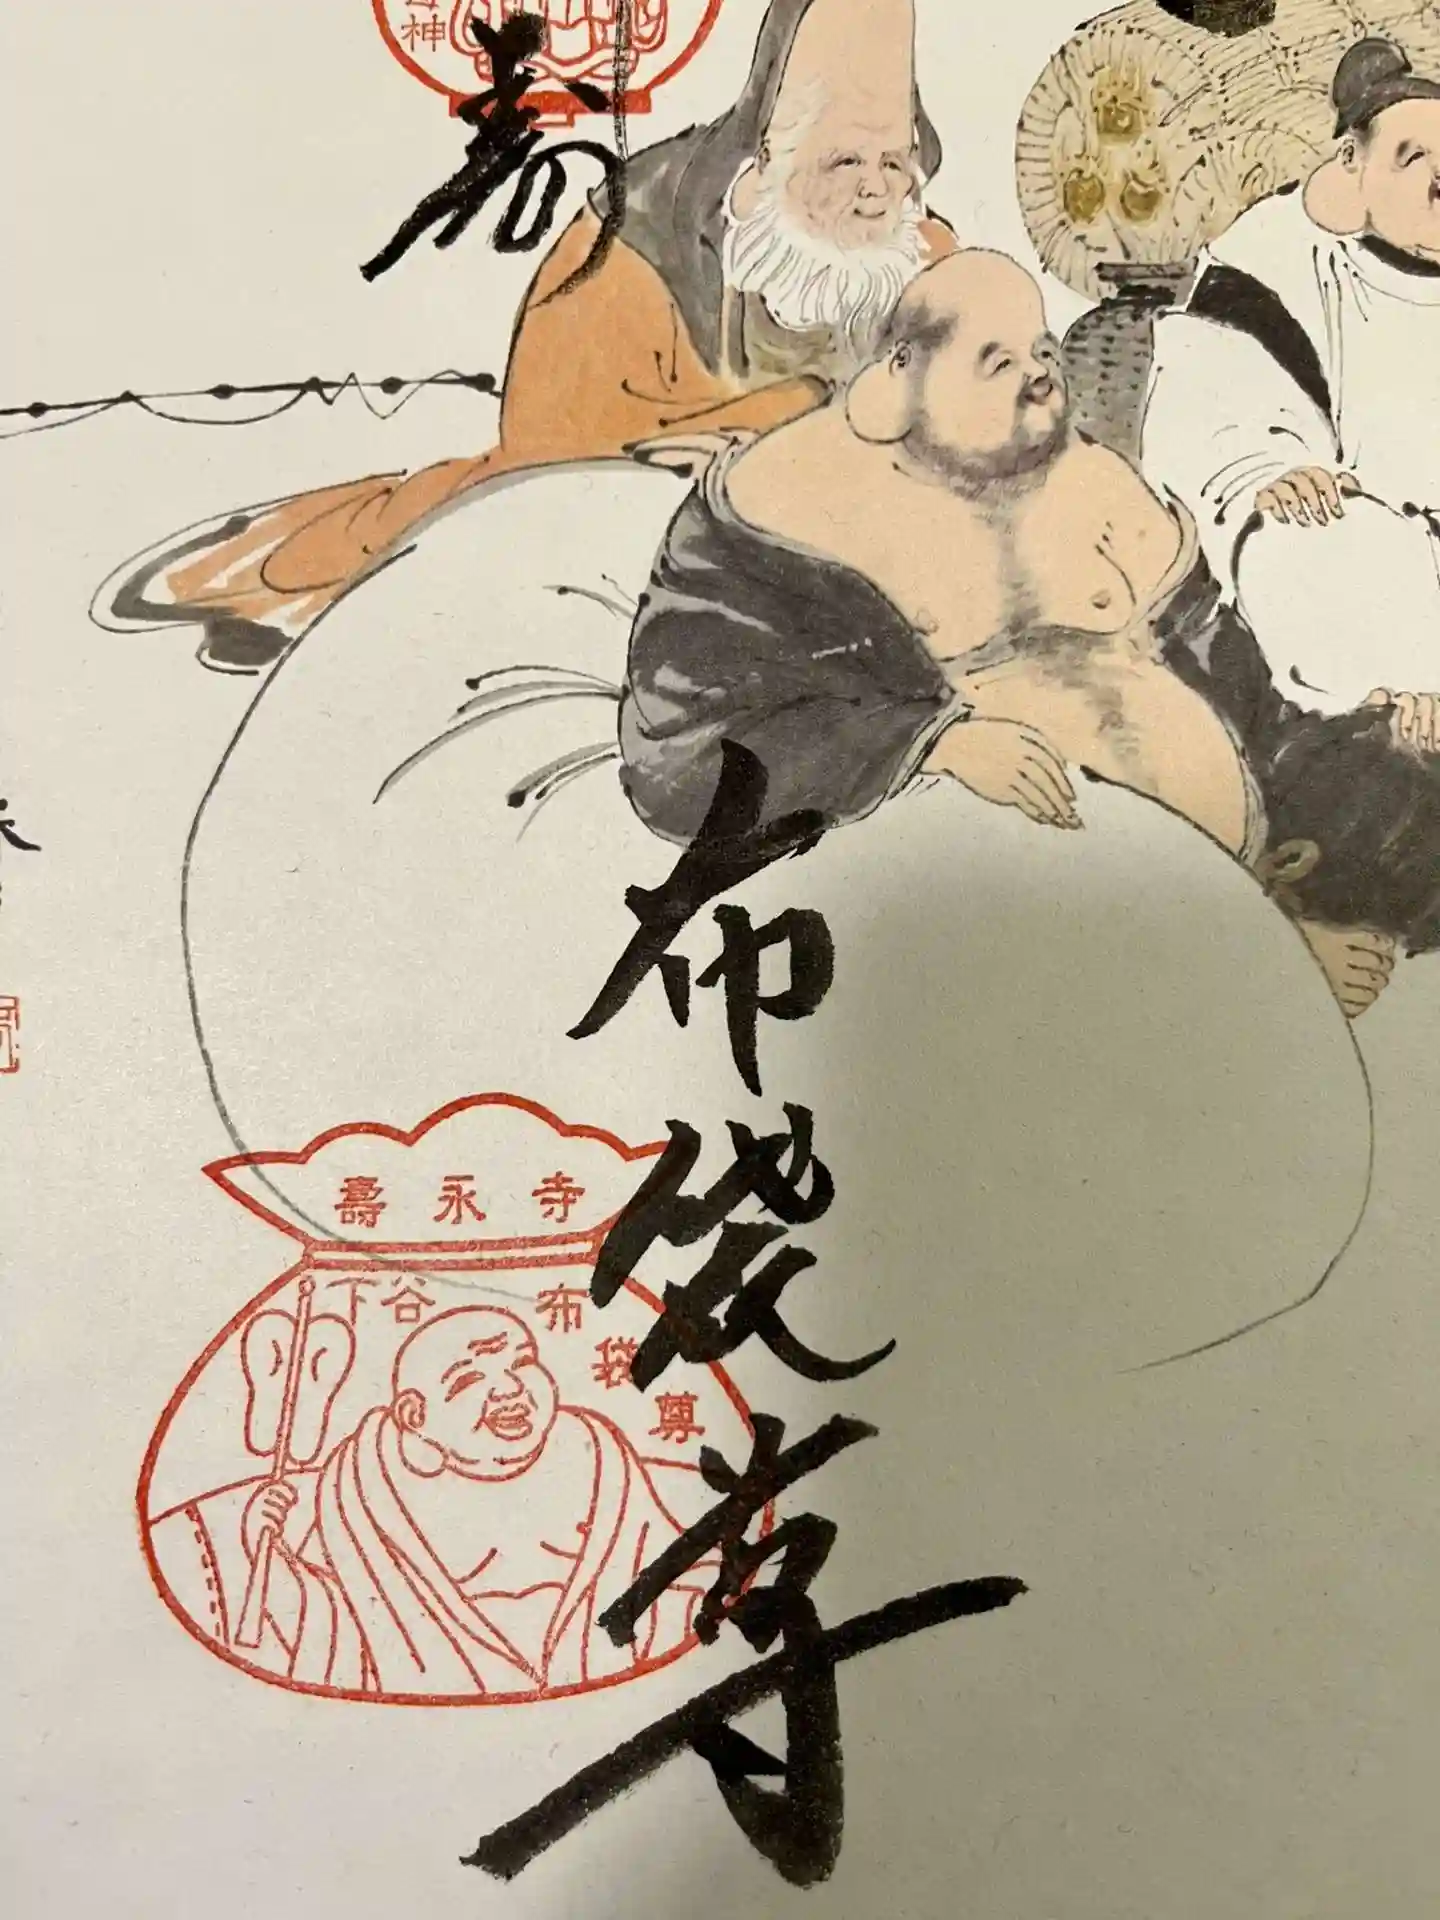 神
寿
布袋尊
壽永寺
下谷
布袋尊